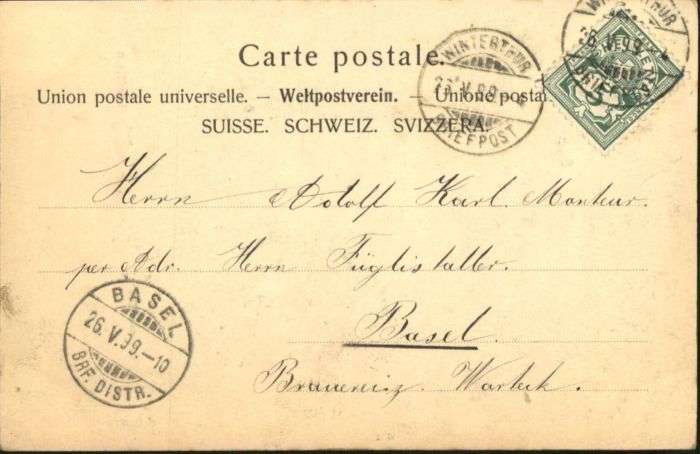 Carte postale.
Union postale universelle. — Weltpostverein. — Unione postal
SUISSE. SCHWEIZ. SVIZZERA.
WINTERTHUR
V.99
BRIEFPOST
WINTERTHUR
26.V.99
Herrn Adolf Karl. Monteur.
per Adr. Herrn Füglistaller.
Basel.
Brauerei z. Warteck.
BASEL
26.V.99.—10
BRF. DISTR.